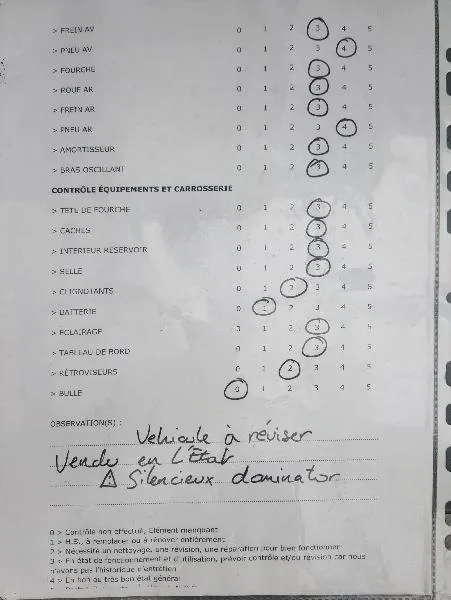 > FREIN AV 0 1 2 3 4 5
> PNEU AV 0 1 2 3 4 5
> FOURCHE 0 1 2 3 4 5
> ROUE AR 0 1 2 3 4 5
> FREIN AR 0 1 2 3 4 5
> PNEU AR 0 1 2 3 4 5
> AMORTISSEUR 0 1 2 3 4 5
> BRAS OSCILLANT 0 1 2 3 4 5
CONTRÔLE ÉQUIPEMENTS ET CARROSSERIE
> TETE DE FOURCHE 0 1 2 3 4 5
> CACHES 0 1 2 3 4 5
> INTERIEUR RESERVOIR 0 1 2 3 4 5
> SELLE 0 1 2 3 4 5
> CLIGNOTANTS 0 1 2 3 4 5
> BATTERIE 0 1 2 3 4 5
> ECLAIRAGE 0 1 2 3 4 5
> TABLEAU DE BORD 0 1 2 3 4 5
> RÉTROVISEURS 0 1 2 3 4 5
> BULLE 0 1 2 3 4 5
OBSERVATION(S) :
Vehicule à réviser
Vendu en L'État
⚠ Silencieux dominator
0 > Contrôle non effectué, Elément manquant
1 > H.S., à remplacer ou à rénover entièrement
2 > Nécessite un nettoyage, une révision, une réparation pour bien fonctionner
3 > En état de fonctionnement et d'utilisation, prévoir contrôle et/ou révision car nous
n'avons pas l'historique d'entretien
4 > En bon ou très bon état général